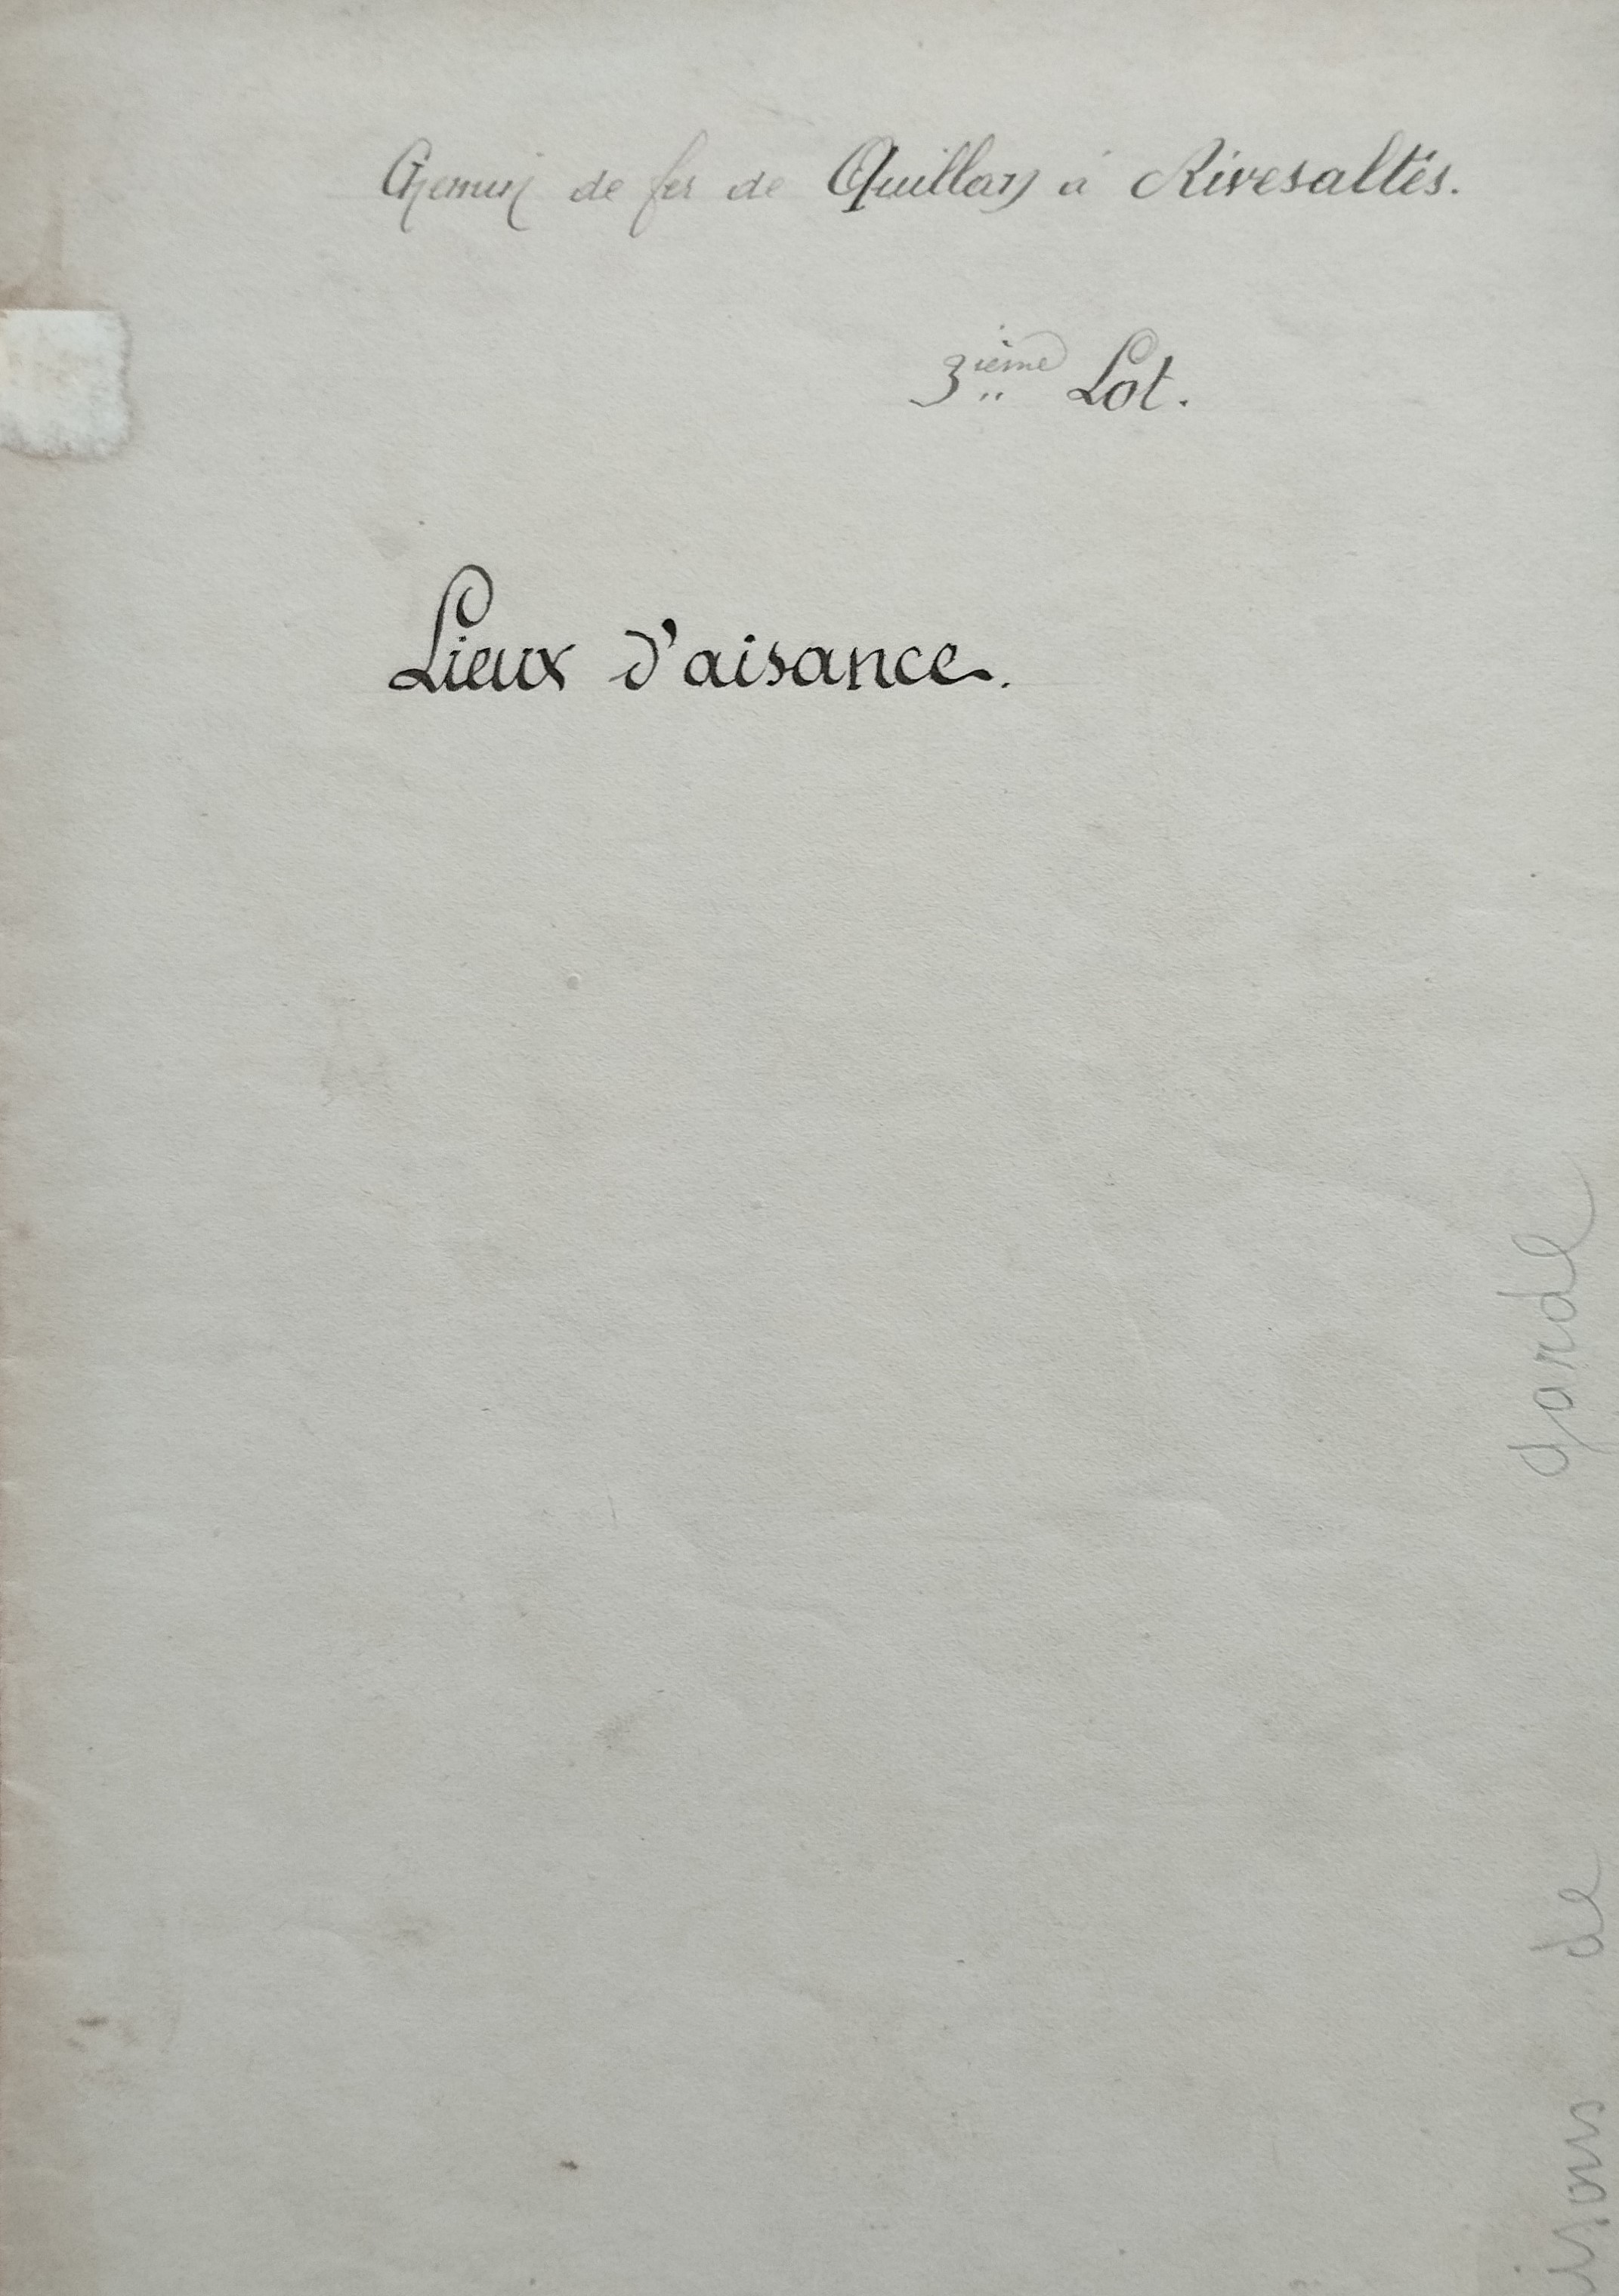 Chemin de fer de Quillan à Rivesaltes.
3ième Lot.
Lieux d'aisance.
isons de garde